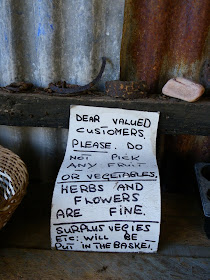 DEAR VALUED
CUSTOMERS.
PLEASE. DO
NOT PICK
ANY FRUIT
OR VEGETABLES.
HERBS AND
FLOWERS
ARE FINE.
SURPLUS VEGIES
ETC: WILL BE
PUT IN THE BASKET.